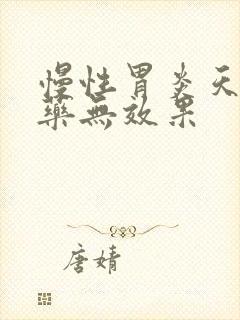 慢性胃炎天
藥無效果
唐婧